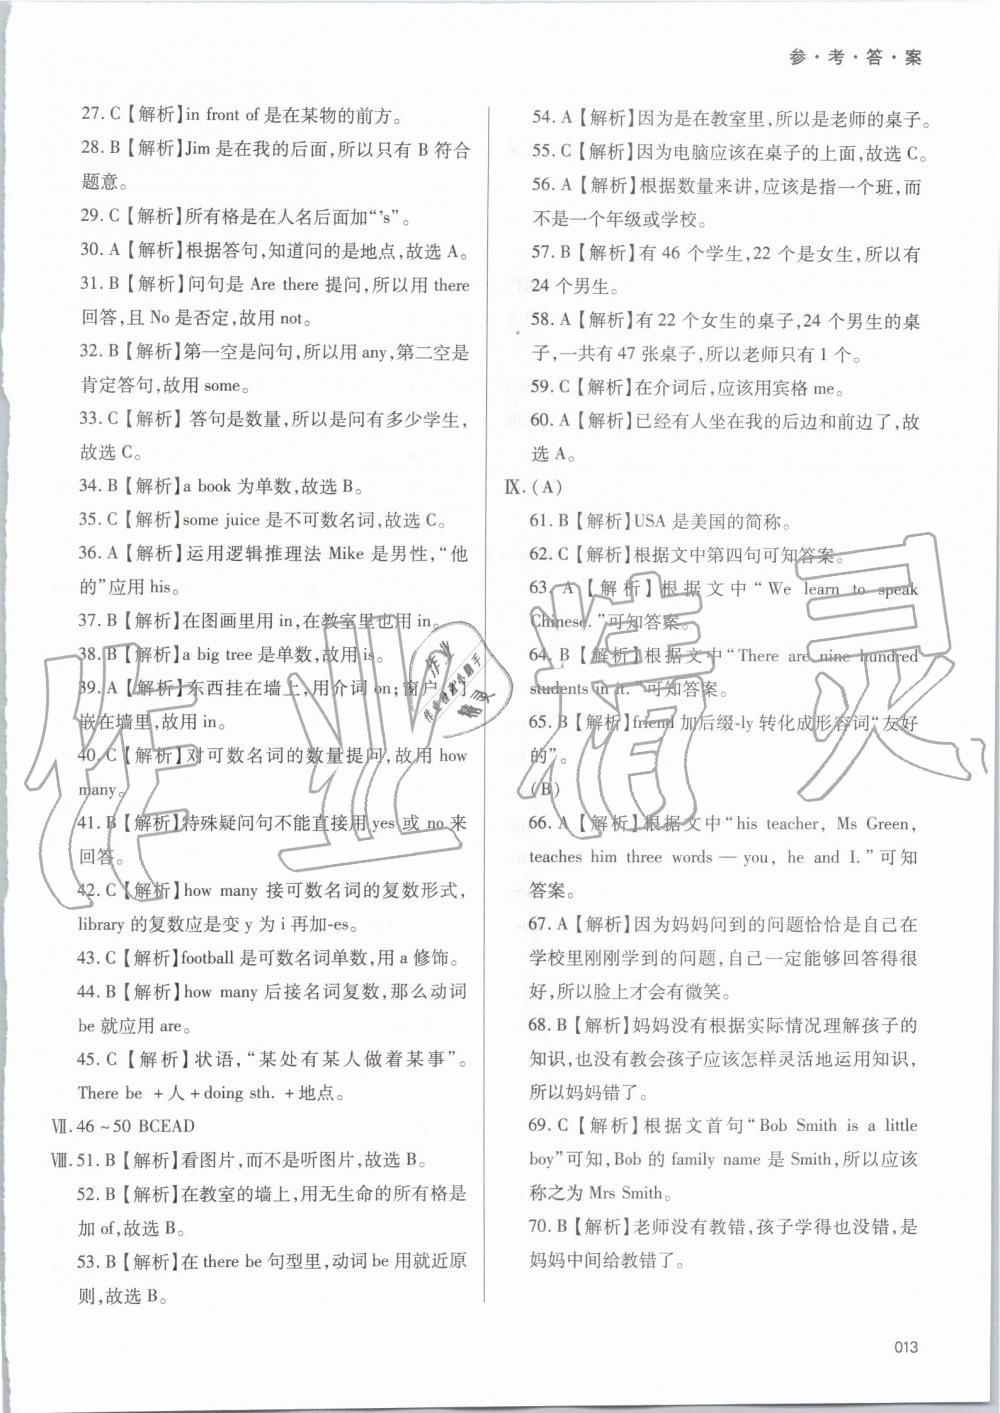 参·考·答·案
27. C【解析】in front of 是在某物的前方。
28. B【解析】Jim 是在我的后面,所以只有 B 符合
题意。
29. C【解析】所有格是在人名后面加“'s”。
30. A【解析】根据答句,知道问的是地点,故选 A。
31. B【解析】问句是 Are there 提问,所以用 there
回答,且 No 是否定,故用 not。
32. B【解析】第一空是问句,所以用 any,第二空是
肯定答句,故用 some。
33. C【解析】答句是数量,所以是问有多少学生,
故选 C。
34. B【解析】a book 为单数,故选 B。
35. C【解析】some juice 是不可数名词,故选 C。
36. A【解析】运用逻辑推理法 Mike 是男性,“他
的”应用 his。
37. B【解析】在图画里用 in,在教室里也用 in。
38. B【解析】a big tree 是单数,故用 is。
39. A【解析】东西挂在墙上,用介词 on;窗户、门
嵌在墙里,故用 in。
40. C【解析】对可数名词的数量提问,故用 how
many。
41. B【解析】特殊疑问句不能直接用 yes 或 no 来
回答。
42. C【解析】how many 接可数名词的复数形式,
library 的复数应是变 y 为 i 再加-es。
43. C【解析】football 是可数名词单数,用 a 修饰。
44. B【解析】how many 后接名词复数,那么动词
be 就应用 are。
45. C【解析】状语,“某处有某人做着某事”。
There be +人+doing sth. +地点。
Ⅶ. 46～50 BCEAD
Ⅷ. 51. B【解析】看图片,而不是听图片,故选 B。
52. B【解析】在教室的墙上,用无生命的所有格是
加 of,故选 B。
53. B【解析】在 there be 句型里,动词 be 用就近原
则,故选 B。
54. A【解析】因为是在教室里,所以是老师的桌子。
55. C【解析】因为电脑应该在桌子的上面,故选 C。
56. A【解析】根据数量来讲,应该是指一个班,而
不是一个年级或学校。
57. B【解析】有 46 个学生,22 个是女生,所以有
24 个男生。
58. A【解析】有 22 个女生的桌子,24 个男生的桌
子,一共有 47 张桌子,所以老师只有 1 个。
59. C【解析】在介词后,应该用宾格 me。
60. A【解析】已经有人坐在我的后边和前边了,故
选 A。
Ⅸ. (A)
61. B【解析】USA 是美国的简称。
62. C【解析】根据文中第四句可知答案。
63. A【解析】根据文中“We learn to speak
Chinese.”可知答案。
64. B【解析】根据文中“There are nine hundred
students in it.”可知答案。
65. B【解析】friend 加后缀-ly 转化成形容词“友好
的”。
(B)
66. A【解析】根据文中“his teacher, Ms Green,
teaches him three words — you, he and I.”可知
答案。
67. A【解析】因为妈妈问到的问题恰恰是自己在
学校里刚刚学到的问题,自己一定能够回答得很
好,所以脸上才会有微笑。
68. B【解析】妈妈没有根据实际情况理解孩子的
知识,也没有教会孩子应该怎样灵活地运用知识,
所以妈妈错了。
69. C【解析】根据文首句“Bob Smith is a little
boy”可知,Bob 的 family name 是 Smith,所以应该
称之为 Mrs Smith。
70. B【解析】老师没有教错,孩子学得也没错,是
妈妈中间给教错了。
013
作业精灵